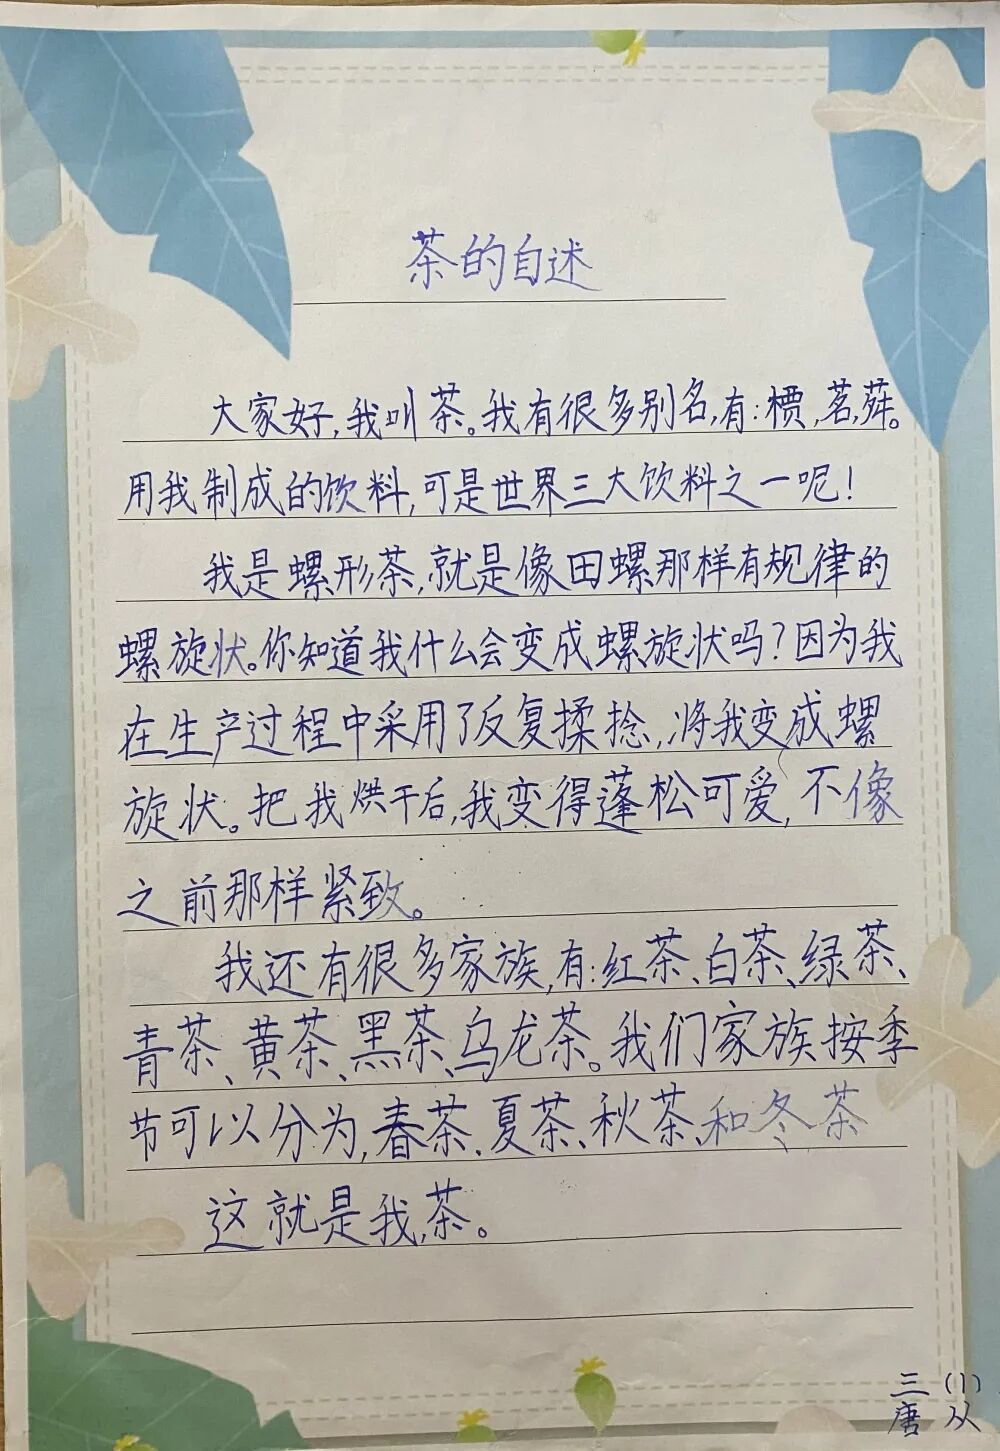 茶的自述
大家好,我叫茶。我有很多别名,有:槚,茗,荈。
用我制成的饮料,可是世界三大饮料之一呢!
我是螺形茶,就是像田螺那样有规律的
螺旋状。你知道我什么会变成螺旋状吗?因为我
在生产过程中采用了反复揉捻,将我变成螺
旋状。把我烘干后,我变得蓬松可爱,不像
之前那样紧致。
我还有很多家族,有:红茶、白茶、绿茶、
青茶、黄茶、黑茶、乌龙茶。我们家族按季
节可以分为,春茶、夏茶、秋茶、和冬茶
这就是我,茶。
三(1)
唐从